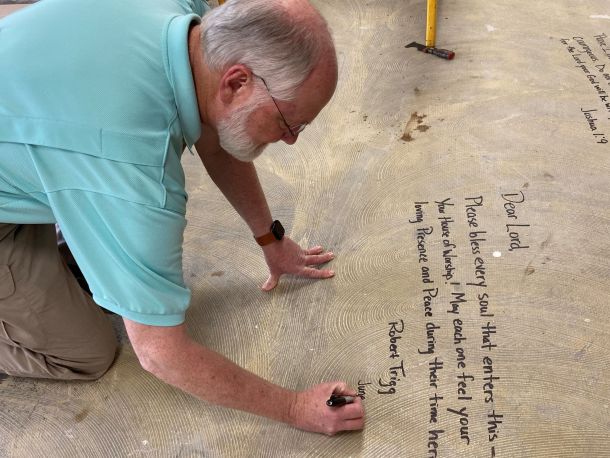 Courageous. Do
for the Lord your God will be
Joshua 1:9
Dear Lord,
Please bless every soul that enters this –
Your House of Worship! May each one feel your
loving Presence and Peace during their time here
Robert Trigg
June